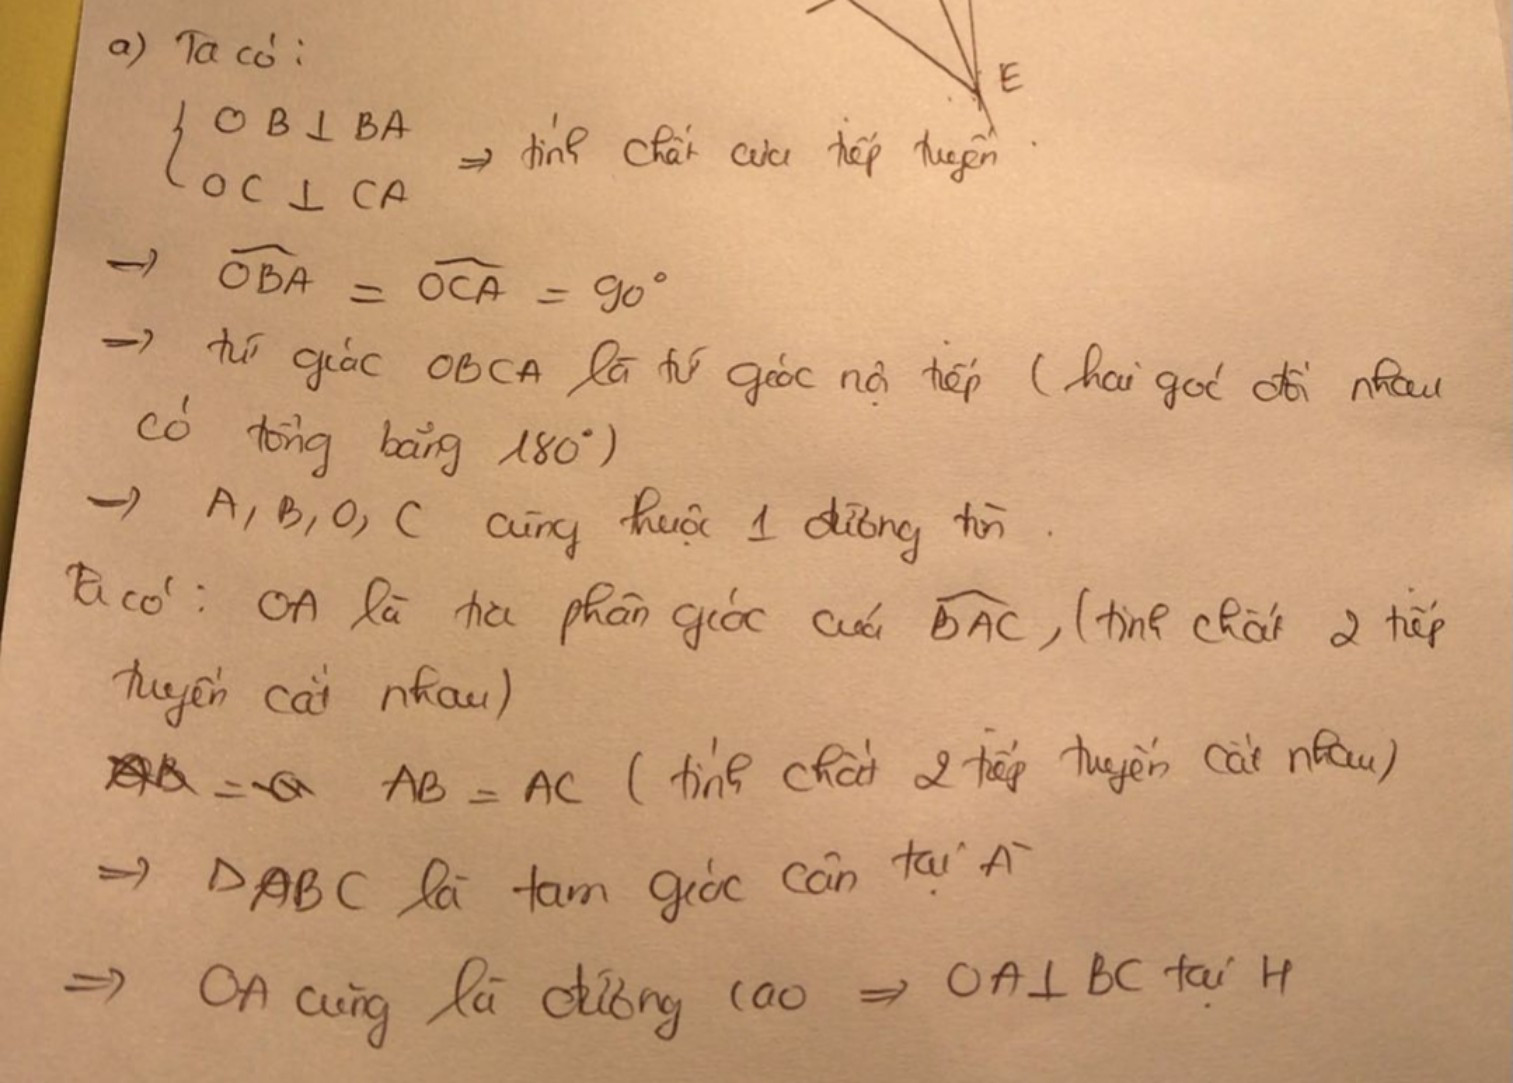 E
a) Ta có:
{ OB ⊥ BA
⇒ tính chất của tiếp tuyến.
OC ⊥ CA
→ \widehat{OBA} = \widehat{OCA} = 90°
→ tứ giác OBCA là tứ giác nội tiếp (hai góc đối nhau
có tổng bằng 180°)
→ A, B, O, C cùng thuộc 1 đường tròn.
Ta có: OA là tia phân giác của \widehat{BAC}, (tính chất 2 tiếp
tuyến cắt nhau)
AB = AC (tính chất 2 tiếp tuyến cắt nhau)
⇒ ΔABC là tam giác cân tại A
⇒ OA cũng là đường cao ⇒ OA ⊥ BC tại H